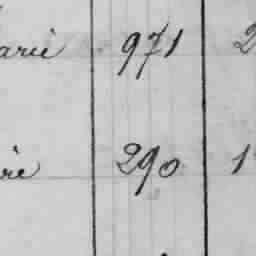 arie 971 2
ire 290 1